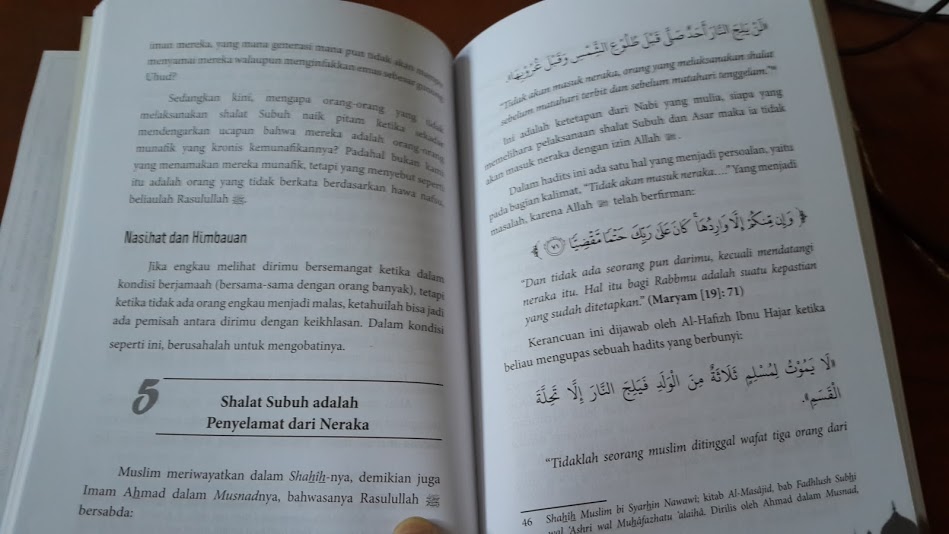 iman mereka, yang mana generasi mana pun tidak akan mampu
menyamai mereka walaupun menginfakkan emas sebesar gunung
Uhud?
Sedangkan kini, mengapa orang-orang yang tidak
melaksanakan shalat Subuh naik pitam ketika sekadar
mendengarkan ucapan bahwa mereka adalah orang-orang
munafik yang kronis kemunafikannya? Padahal bukan kami
yang menamakan mereka munafik, tetapi yang menyebut seperti
itu adalah orang yang tidak berkata berdasarkan hawa nafsu,
beliaulah Rasulullah ﷺ.
Nasihat dan Himbauan
Jika engkau melihat dirimu bersemangat ketika dalam
kondisi berjamaah (bersama-sama dengan orang banyak), tetapi
ketika tidak ada orang engkau menjadi malas, ketahuilah bisa jadi
ada pemisah antara dirimu dengan keikhlasan. Dalam kondisi
seperti ini, berusahalah untuk mengobatinya.
5
Shalat Subuh adalah
Penyelamat dari Neraka
Muslim meriwayatkan dalam Shahih-nya, demikian juga
Imam Ahmad dalam Musnadnya, bahwasanya Rasulullah ﷺ
bersabda:
«لَنْ يَلِجَ النَّارَ أَحَدٌ صَلَّى قَبْلَ طُلُوْعِ الشَّمْسِ وَقَبْلَ غُرُوْبِهَا»
"Tidak akan masuk neraka, orang yang melaksanakan shalat
sebelum matahari terbit dan sebelum matahari tenggelam."46
Ini adalah ketetapan dari Nabi yang mulia, siapa yang
memelihara pelaksanaan shalat Subuh dan Asar maka ia tidak
akan masuk neraka dengan izin Allah ﷻ.
Dalam hadits ini ada satu hal yang menjadi persoalan, yaitu
pada bagian kalimat, "Tidak akan masuk neraka...." Yang menjadi
masalah, karena Allah ﷻ telah berfirman:
﴿ وَإِن مِّنكُمْ إِلَّا وَارِدُهَا ۚ كَانَ عَلَىٰ رَبِّكَ حَتْمًا مَّقْضِيًّا ٧١ ﴾
"Dan tidak ada seorang pun darimu, kecuali mendatangi
neraka itu. Hal itu bagi Rabbmu adalah suatu kepastian
yang sudah ditetapkan." (Maryam [19]: 71)
Kerancuan ini dijawab oleh Al-Hafizh Ibnu Hajar ketika
beliau mengupas sebuah hadits yang berbunyi:
«لَا يَمُوْتُ لِمُسْلِمٍ ثَلَاثَةٌ مِنَ الْوَلَدِ فَيَلِجَ النَّارَ إِلَّا تَحِلَّةَ
الْقَسَمِ».
"Tidaklah seorang muslim ditinggal wafat tiga orang dari
46 Shahih Muslim bi Syarhin Nawawi; kitab Al-Masâjid, bab Fadhlush Subhi
wal 'Ashri wal Muhâfazhatu 'alaihâ. Dirilis oleh Ahmad dalam Musnad,